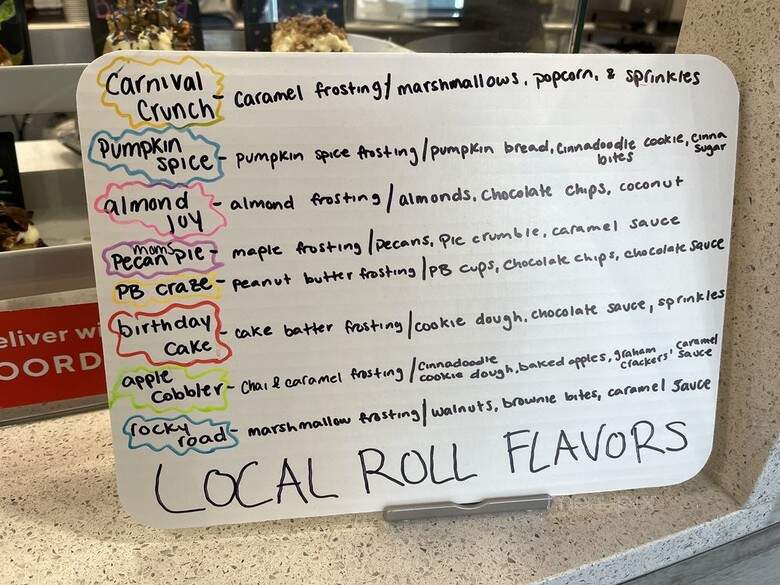 Carnival
Crunch - Caramel frosting / marshmallows, popcorn, & sprinkles
Pumpkin
spice - pumpkin spice frosting / pumpkin bread, Cinnadoodle cookie bites, Cinna Sugar
almond
joy - almond frosting / almonds, chocolate chips, coconut
mom's
Pecan Pie - maple frosting / pecans, pie crumble, caramel sauce
PB craze - peanut butter frosting / PB cups, chocolate chips, chocolate sauce
birthday
cake - cake batter frosting / cookie dough, chocolate sauce, sprinkles
apple
Cobbler - Chai & caramel frosting / Cinnadoodle cookie dough, baked apples, graham crackers, caramel sauce
rocky
road - marshmallow frosting / walnuts, brownie bites, caramel sauce
LOCAL ROLL FLAVORS
eliver wi
OORD